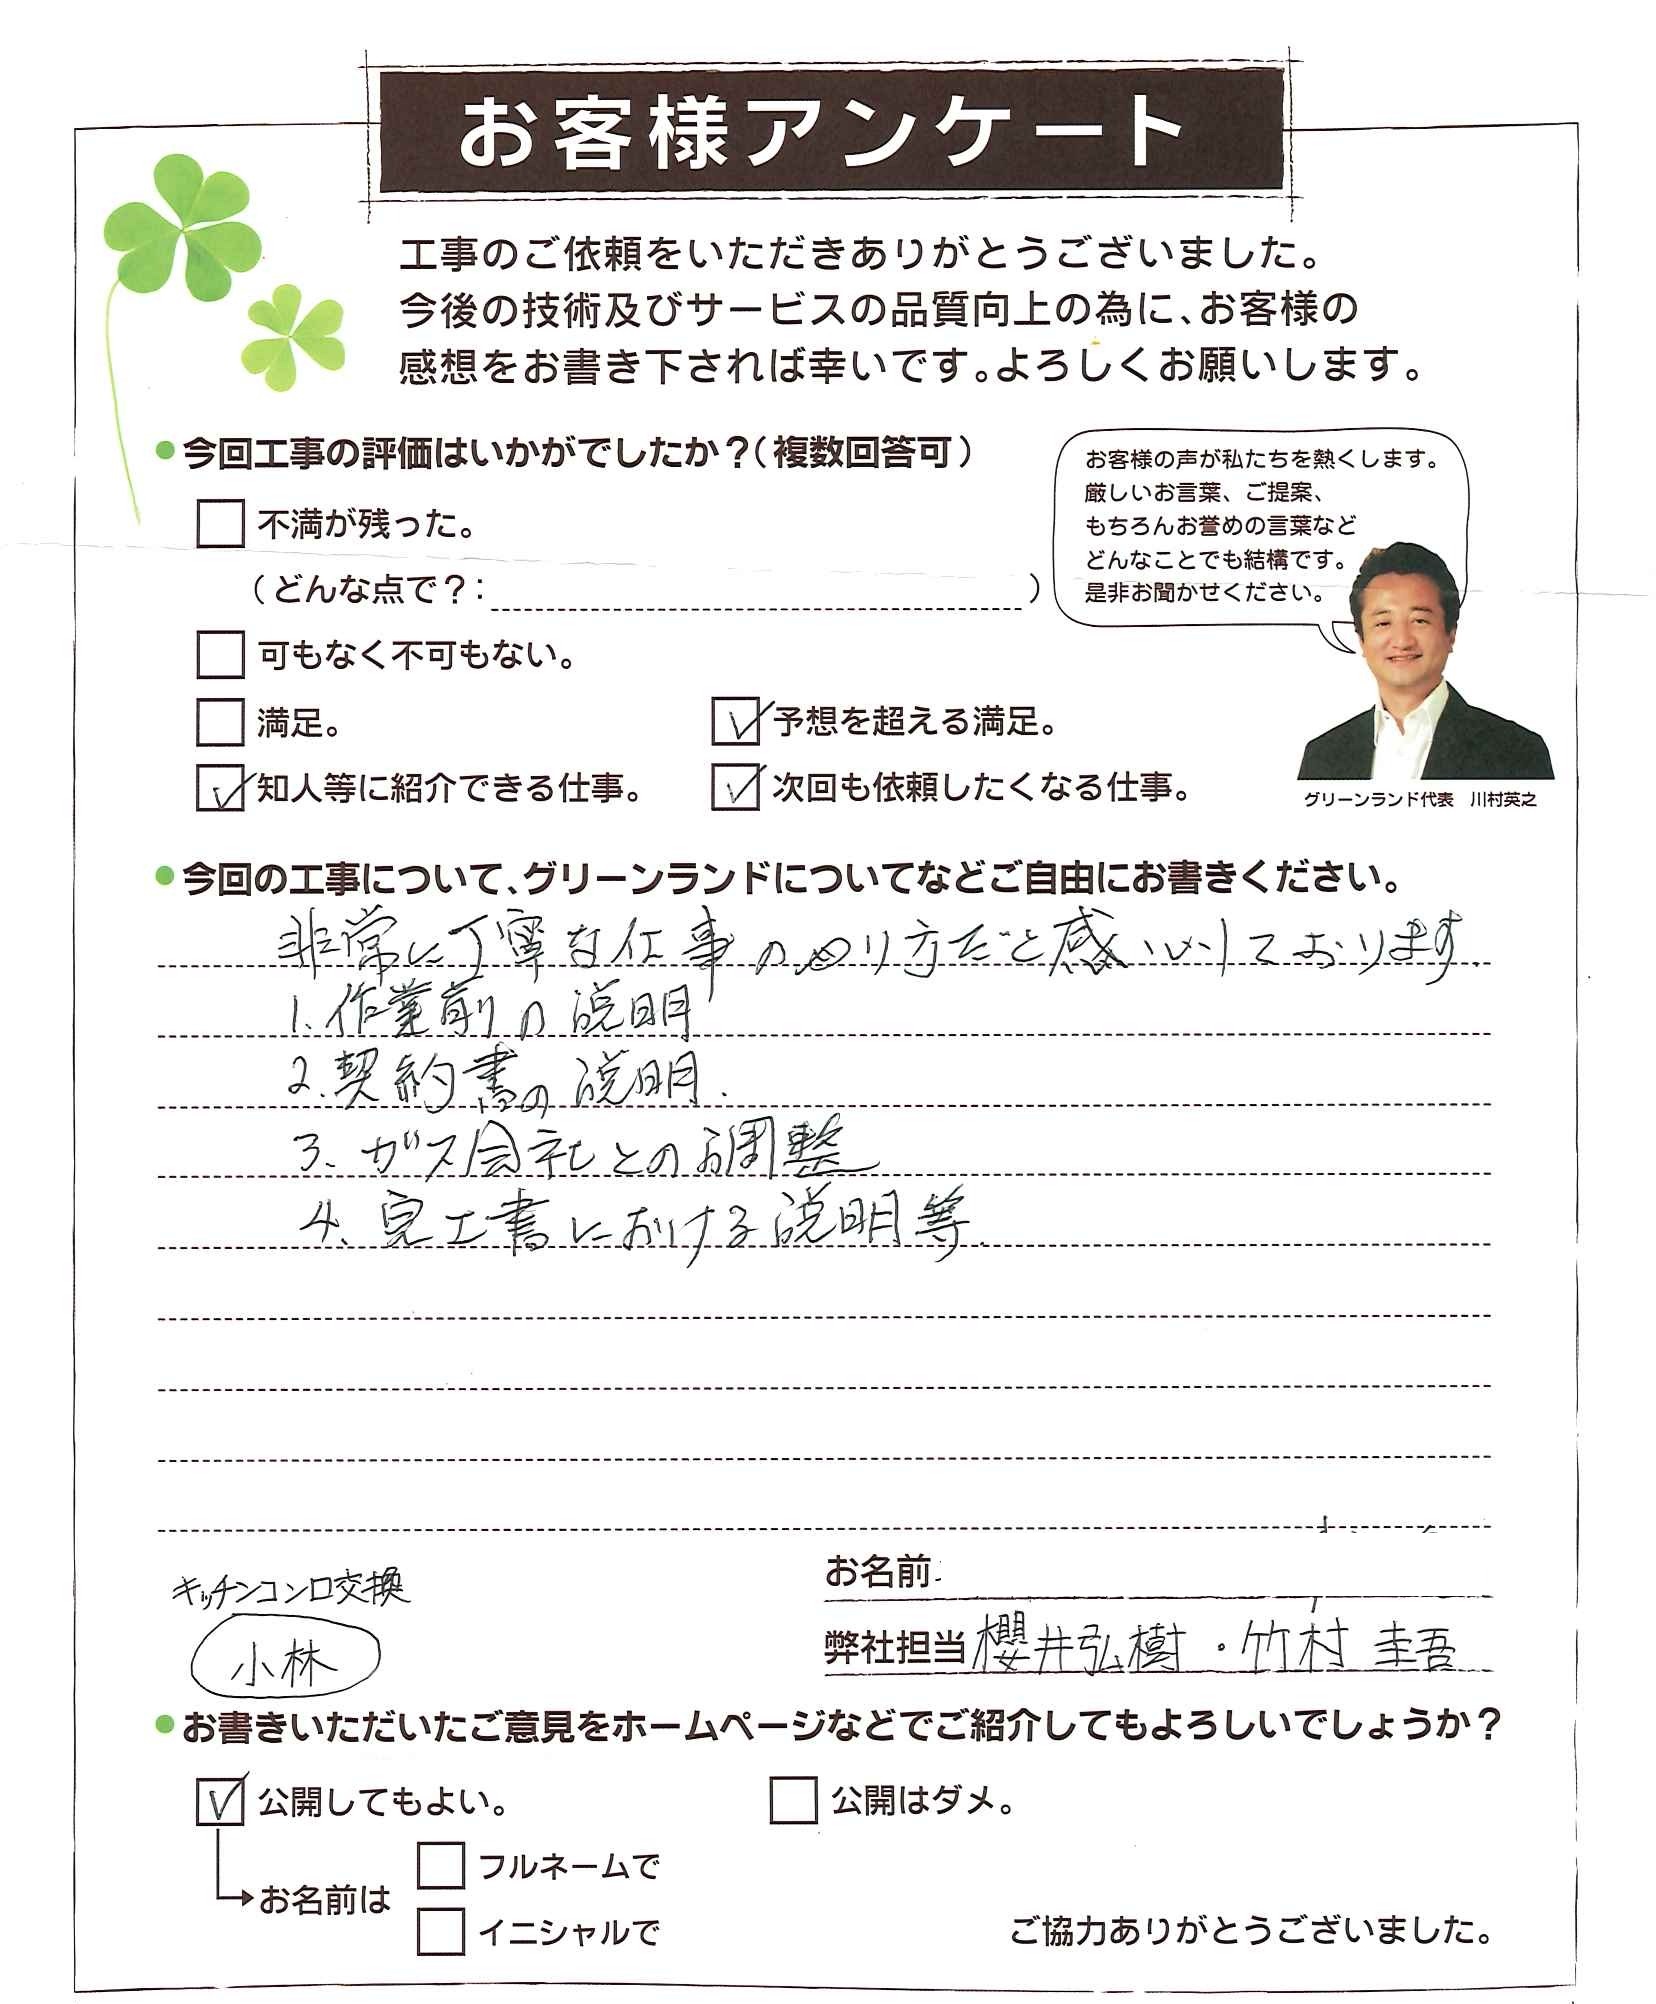 お客様アンケート
工事のご依頼をいただきありがとうございました。
今後の技術及びサービスの品質向上の為に、お客様の
感想をお書き下されば幸いです。よろしくお願いします。
今回工事の評価はいかがでしたか？（複数回答可）
お客様の声が私たちを熱くします。
厳しいお言葉、ご提案、
もちろんお誉めの言葉など
どんなことでも結構です。
是非お聞かせください。
不満が残った。
（どんな点で？：　）
可もなく不可もない。
満足。
予想を超える満足。
知人等に紹介できる仕事。
次回も依頼したくなる仕事。
グリーンランド代表　川村英之
今回の工事について、グリーンランドについてなどご自由にお書きください。
非常に丁寧な仕事のやり方だと感心しております.
1.作業前の説明
2.契約書の説明.
3.ガス会社との調整
4.完工書における説明等.
キッチンコンロ交換
小林
お名前
弊社担当 櫻井弘樹・竹村 圭吾
お書きいただいたご意見をホームページなどでご紹介してもよろしいでしょうか？
公開してもよい。
公開はダメ。
お名前は
フルネームで
イニシャルで
ご協力ありがとうございました。